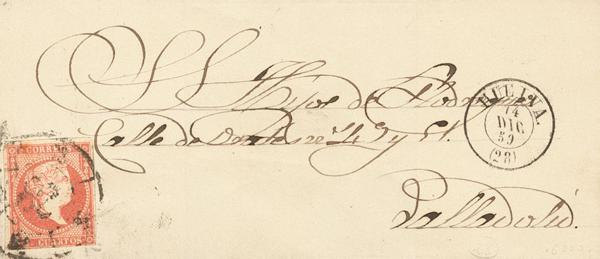 S.S. Hijos de Rodriguez
Calle de
Valladolid.
HUELVA.
14
DIC
59
(28)
CORREOS
CUARTOS